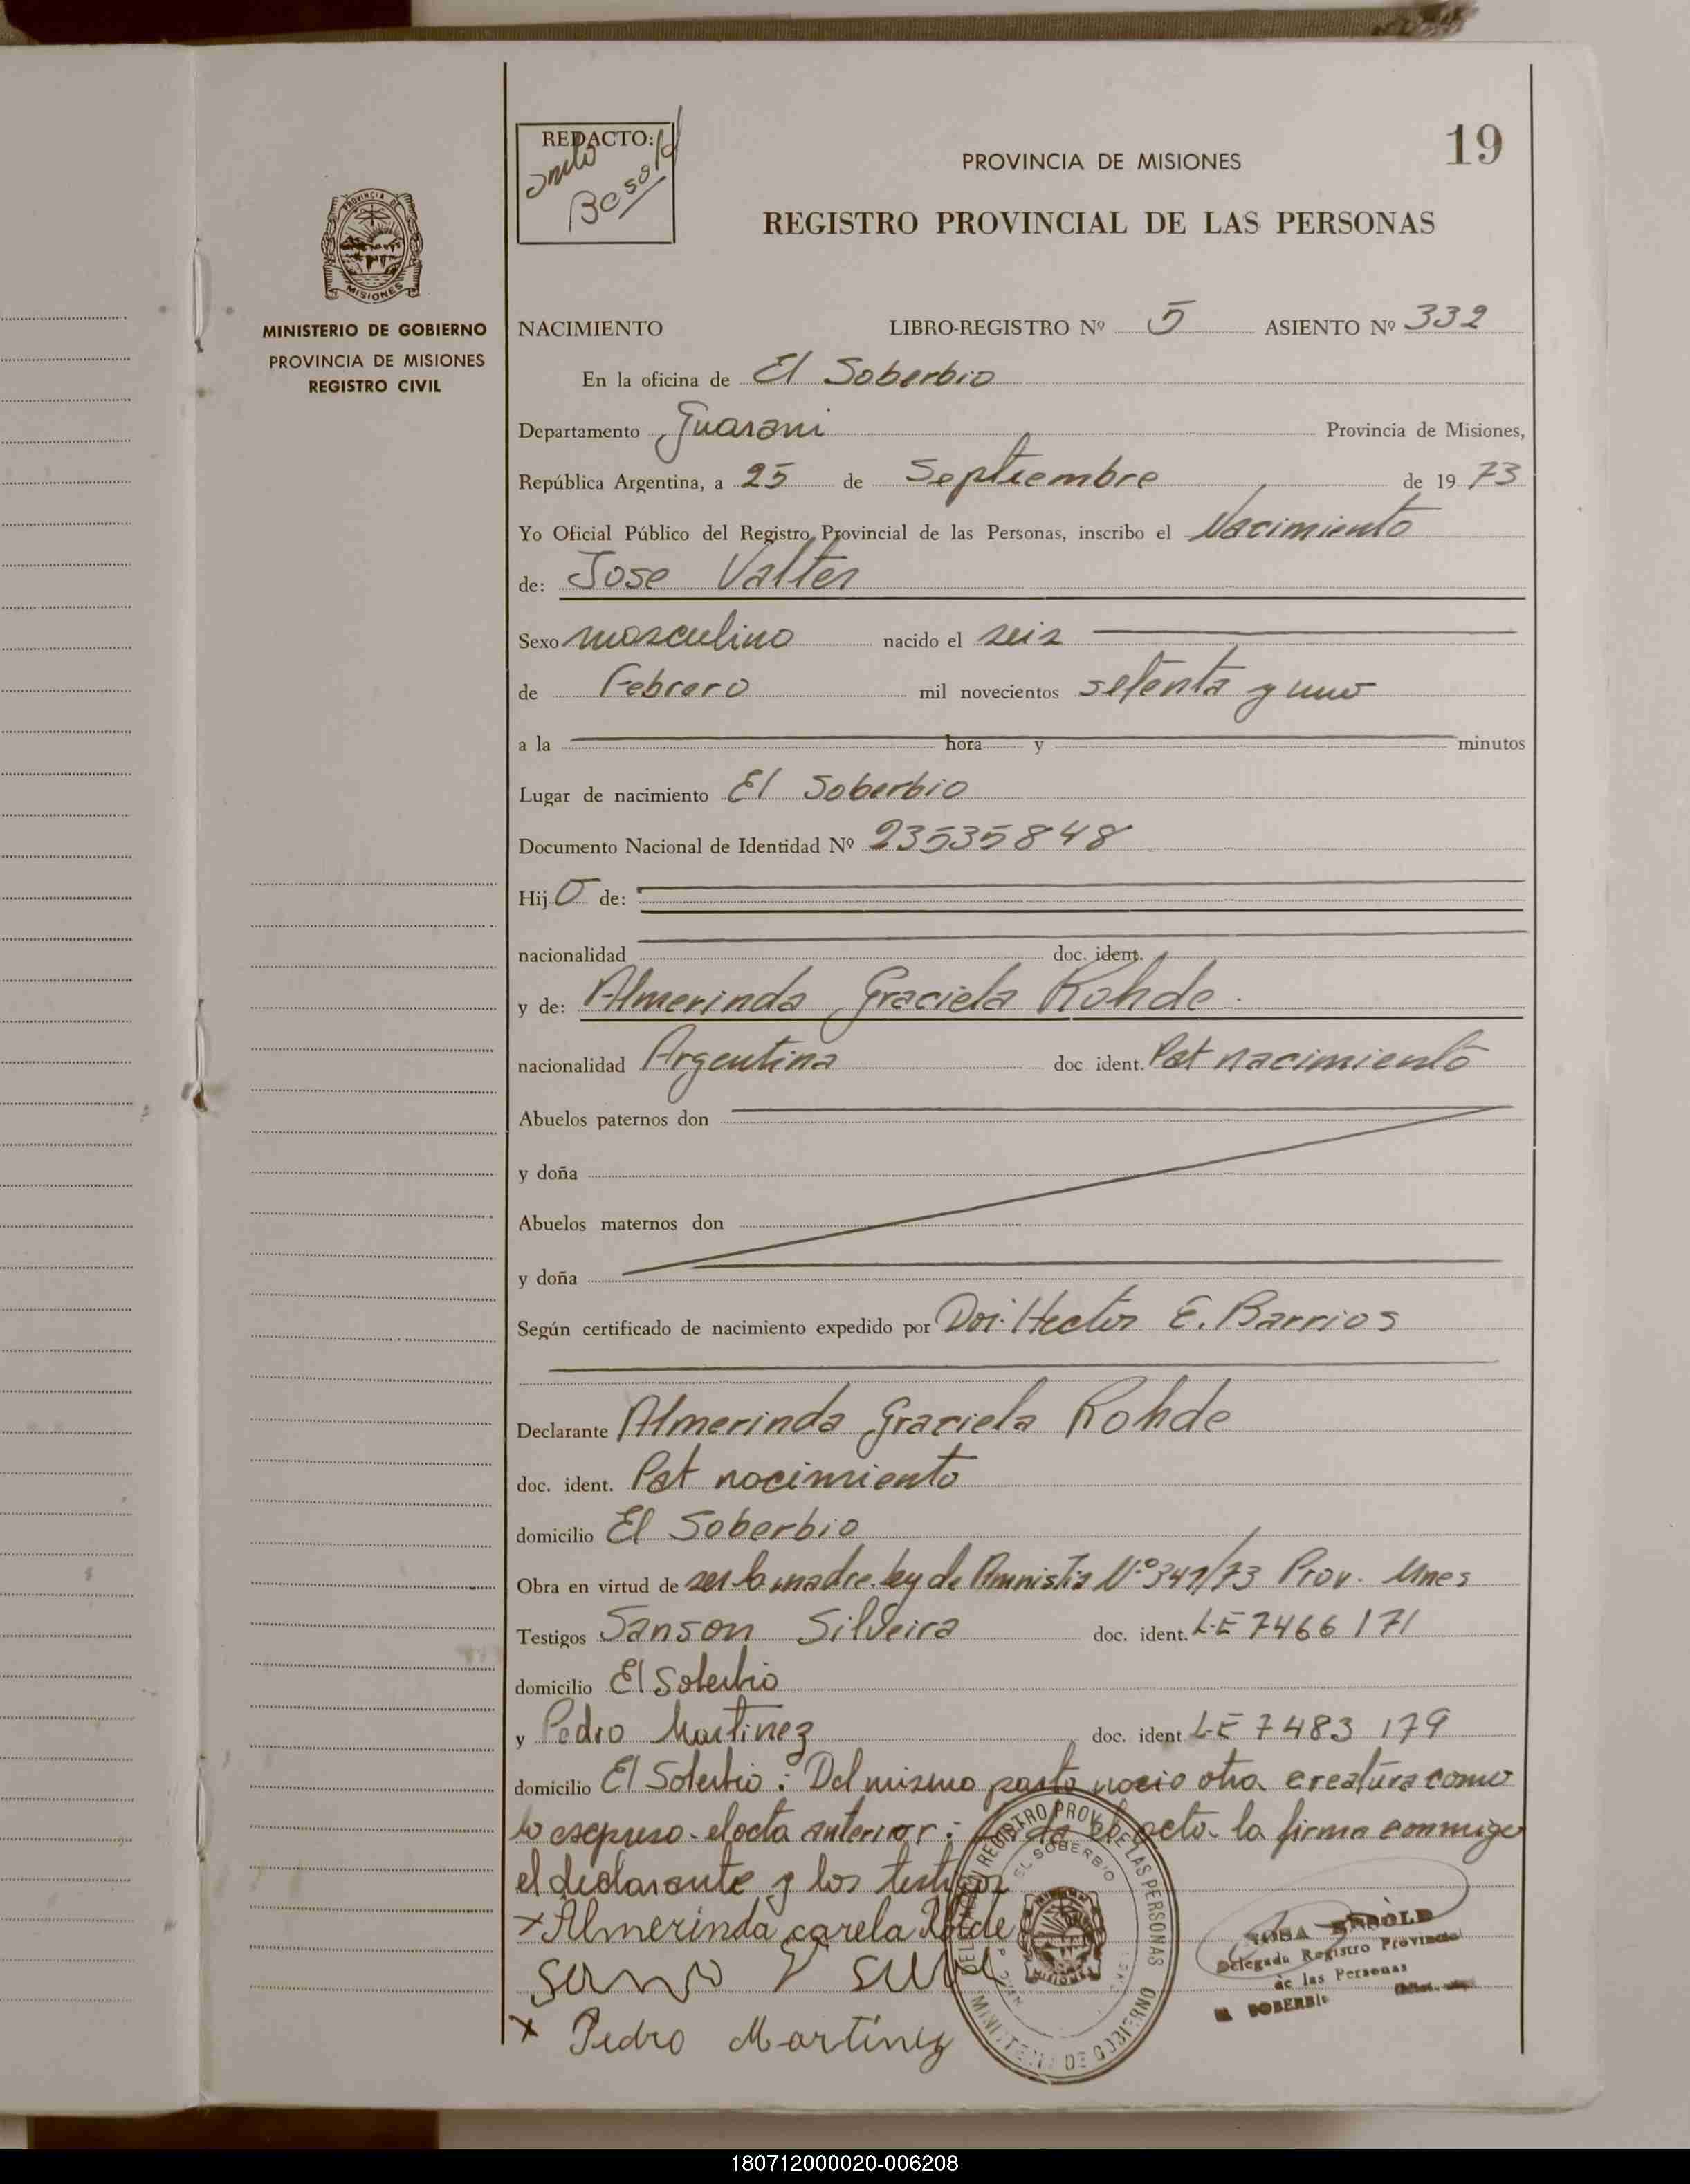 19
REDACTO:
PROVINCIA DE MISIONES
REGISTRO PROVINCIAL DE LAS PERSONAS
PROVINCIA DE
MISIONES
MINISTERIO DE GOBIERNO
PROVINCIA DE MISIONES
REGISTRO CIVIL
NACIMIENTO LIBRO-REGISTRO Nº 5 ASIENTO Nº 332
En la oficina de El Soberbio
Departamento Guarani Provincia de Misiones,
República Argentina, a 25 de Septiembre de 19 73
Yo Oficial Público del Registro Provincial de las Personas, inscribo el Nacimiento
de: Jose Valter
Sexo masculino nacido el seis
de Febrero mil novecientos setenta y uno
a la hora y minutos
Lugar de nacimiento El Soberbio
Documento Nacional de Identidad Nº 23535848
Hijo de:
nacionalidad doc. ident.
y de: Almerinda Graciela Rohde.
nacionalidad Argentina doc ident. Pat nacimiento
Abuelos paternos don
y doña
Abuelos maternos don
y doña
Según certificado de nacimiento expedido por Hector E. Barrios
Declarante Almerinda Graciela Rohde
doc. ident. Pat nacimiento
domicilio El Soberbio
Obra en virtud de ser la madre. ley de Amnistia Nº 341/73 Prov. Mnes
Testigos Sanson Silveira doc. ident. L.E 7466 171
domicilio El Soberbio
y Pedro Martinez doc. ident L-E 7483 179
domicilio El Soberbio: Del mismo parto nacio otra creatura como
lo expreso el acta anterior: el acto la firma conmigo
el declarante y los testigos
x Almerinda carela Rohde
x Pedro Martinez
EL SOBERBIO
MISIONES
MINISTERIO DE GOBIERNO
Delegada Registro Provincial
de las Personas
SOBERBIO
180712000020-006208